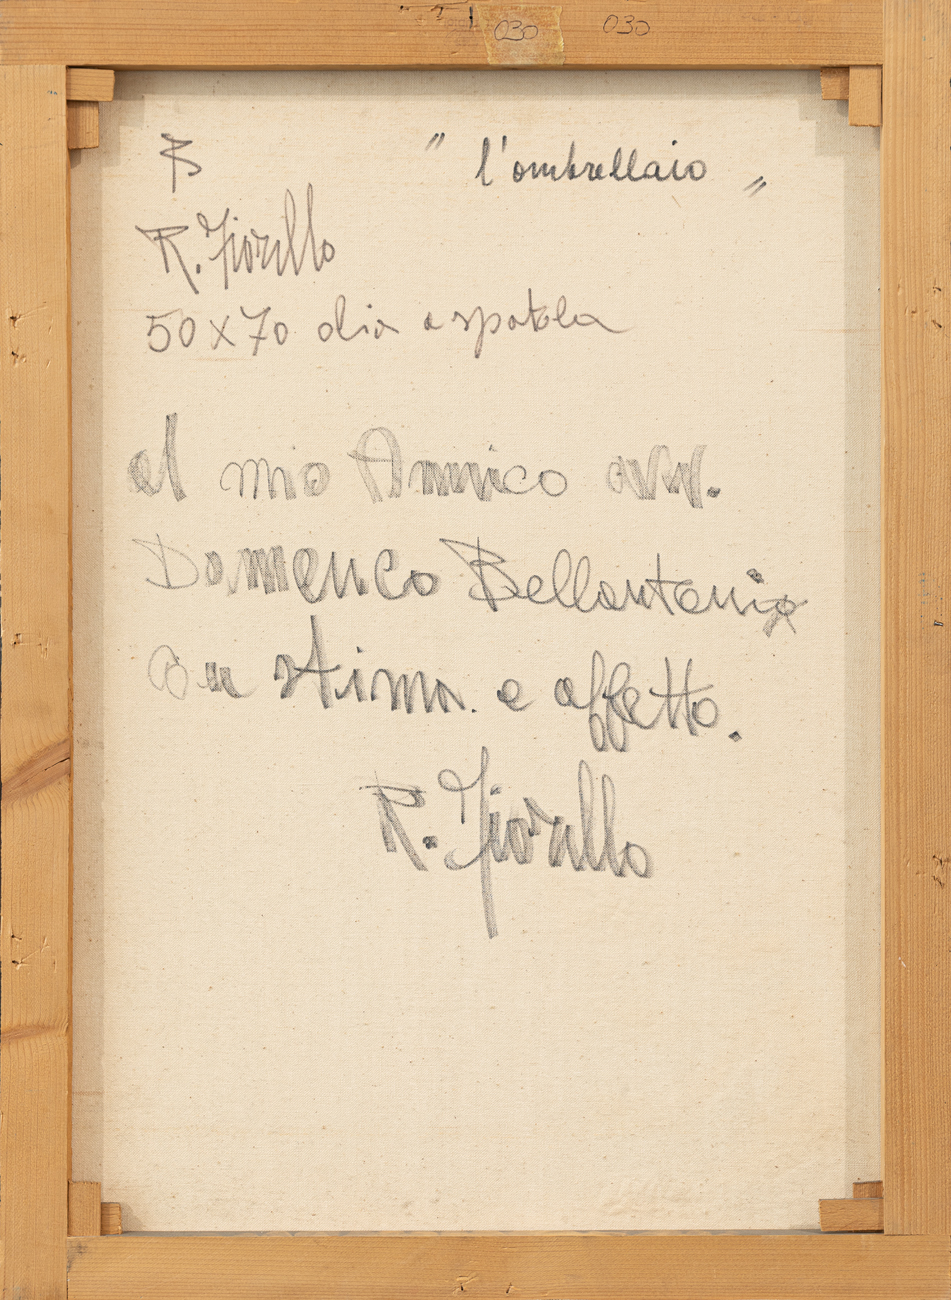 030 030
B "l'ombrellaio"
R. Fiorillo
50x70 olio a spatola
al mio Amico avv.
Domenico Bellantonio
con stima e affetto.
R. Fiorillo